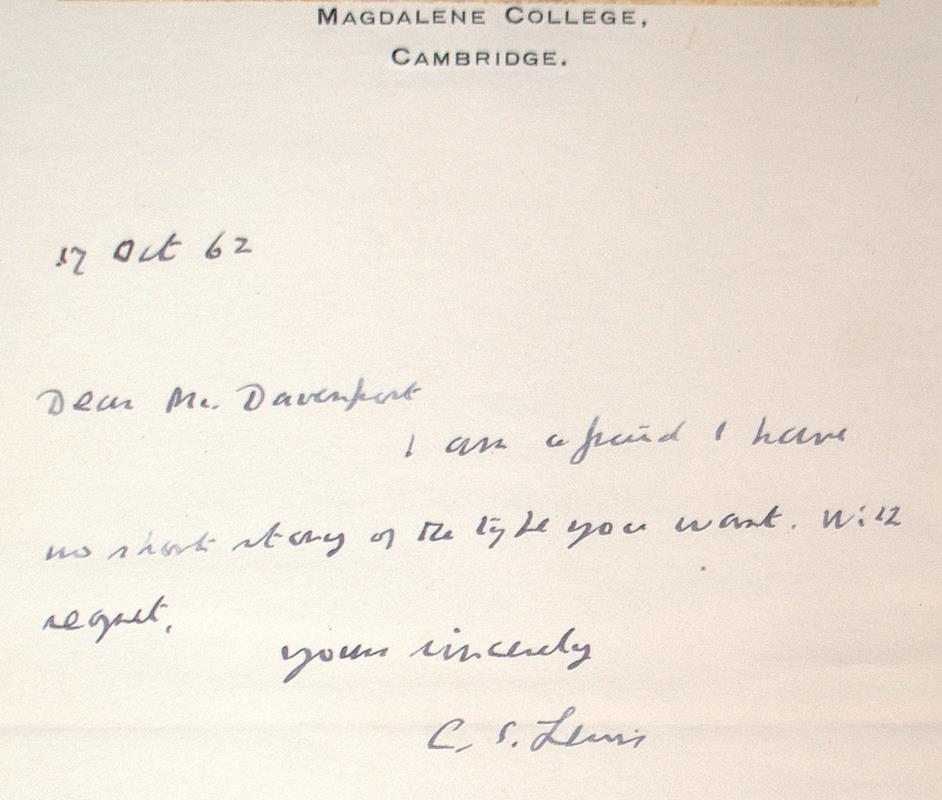 MAGDALENE COLLEGE,
CAMBRIDGE.
17 Oct 62
Dear Mr. Davenport
I am afraid I have
no short story of the type you want. With
regret,
yours sincerely
C. S. Lewis